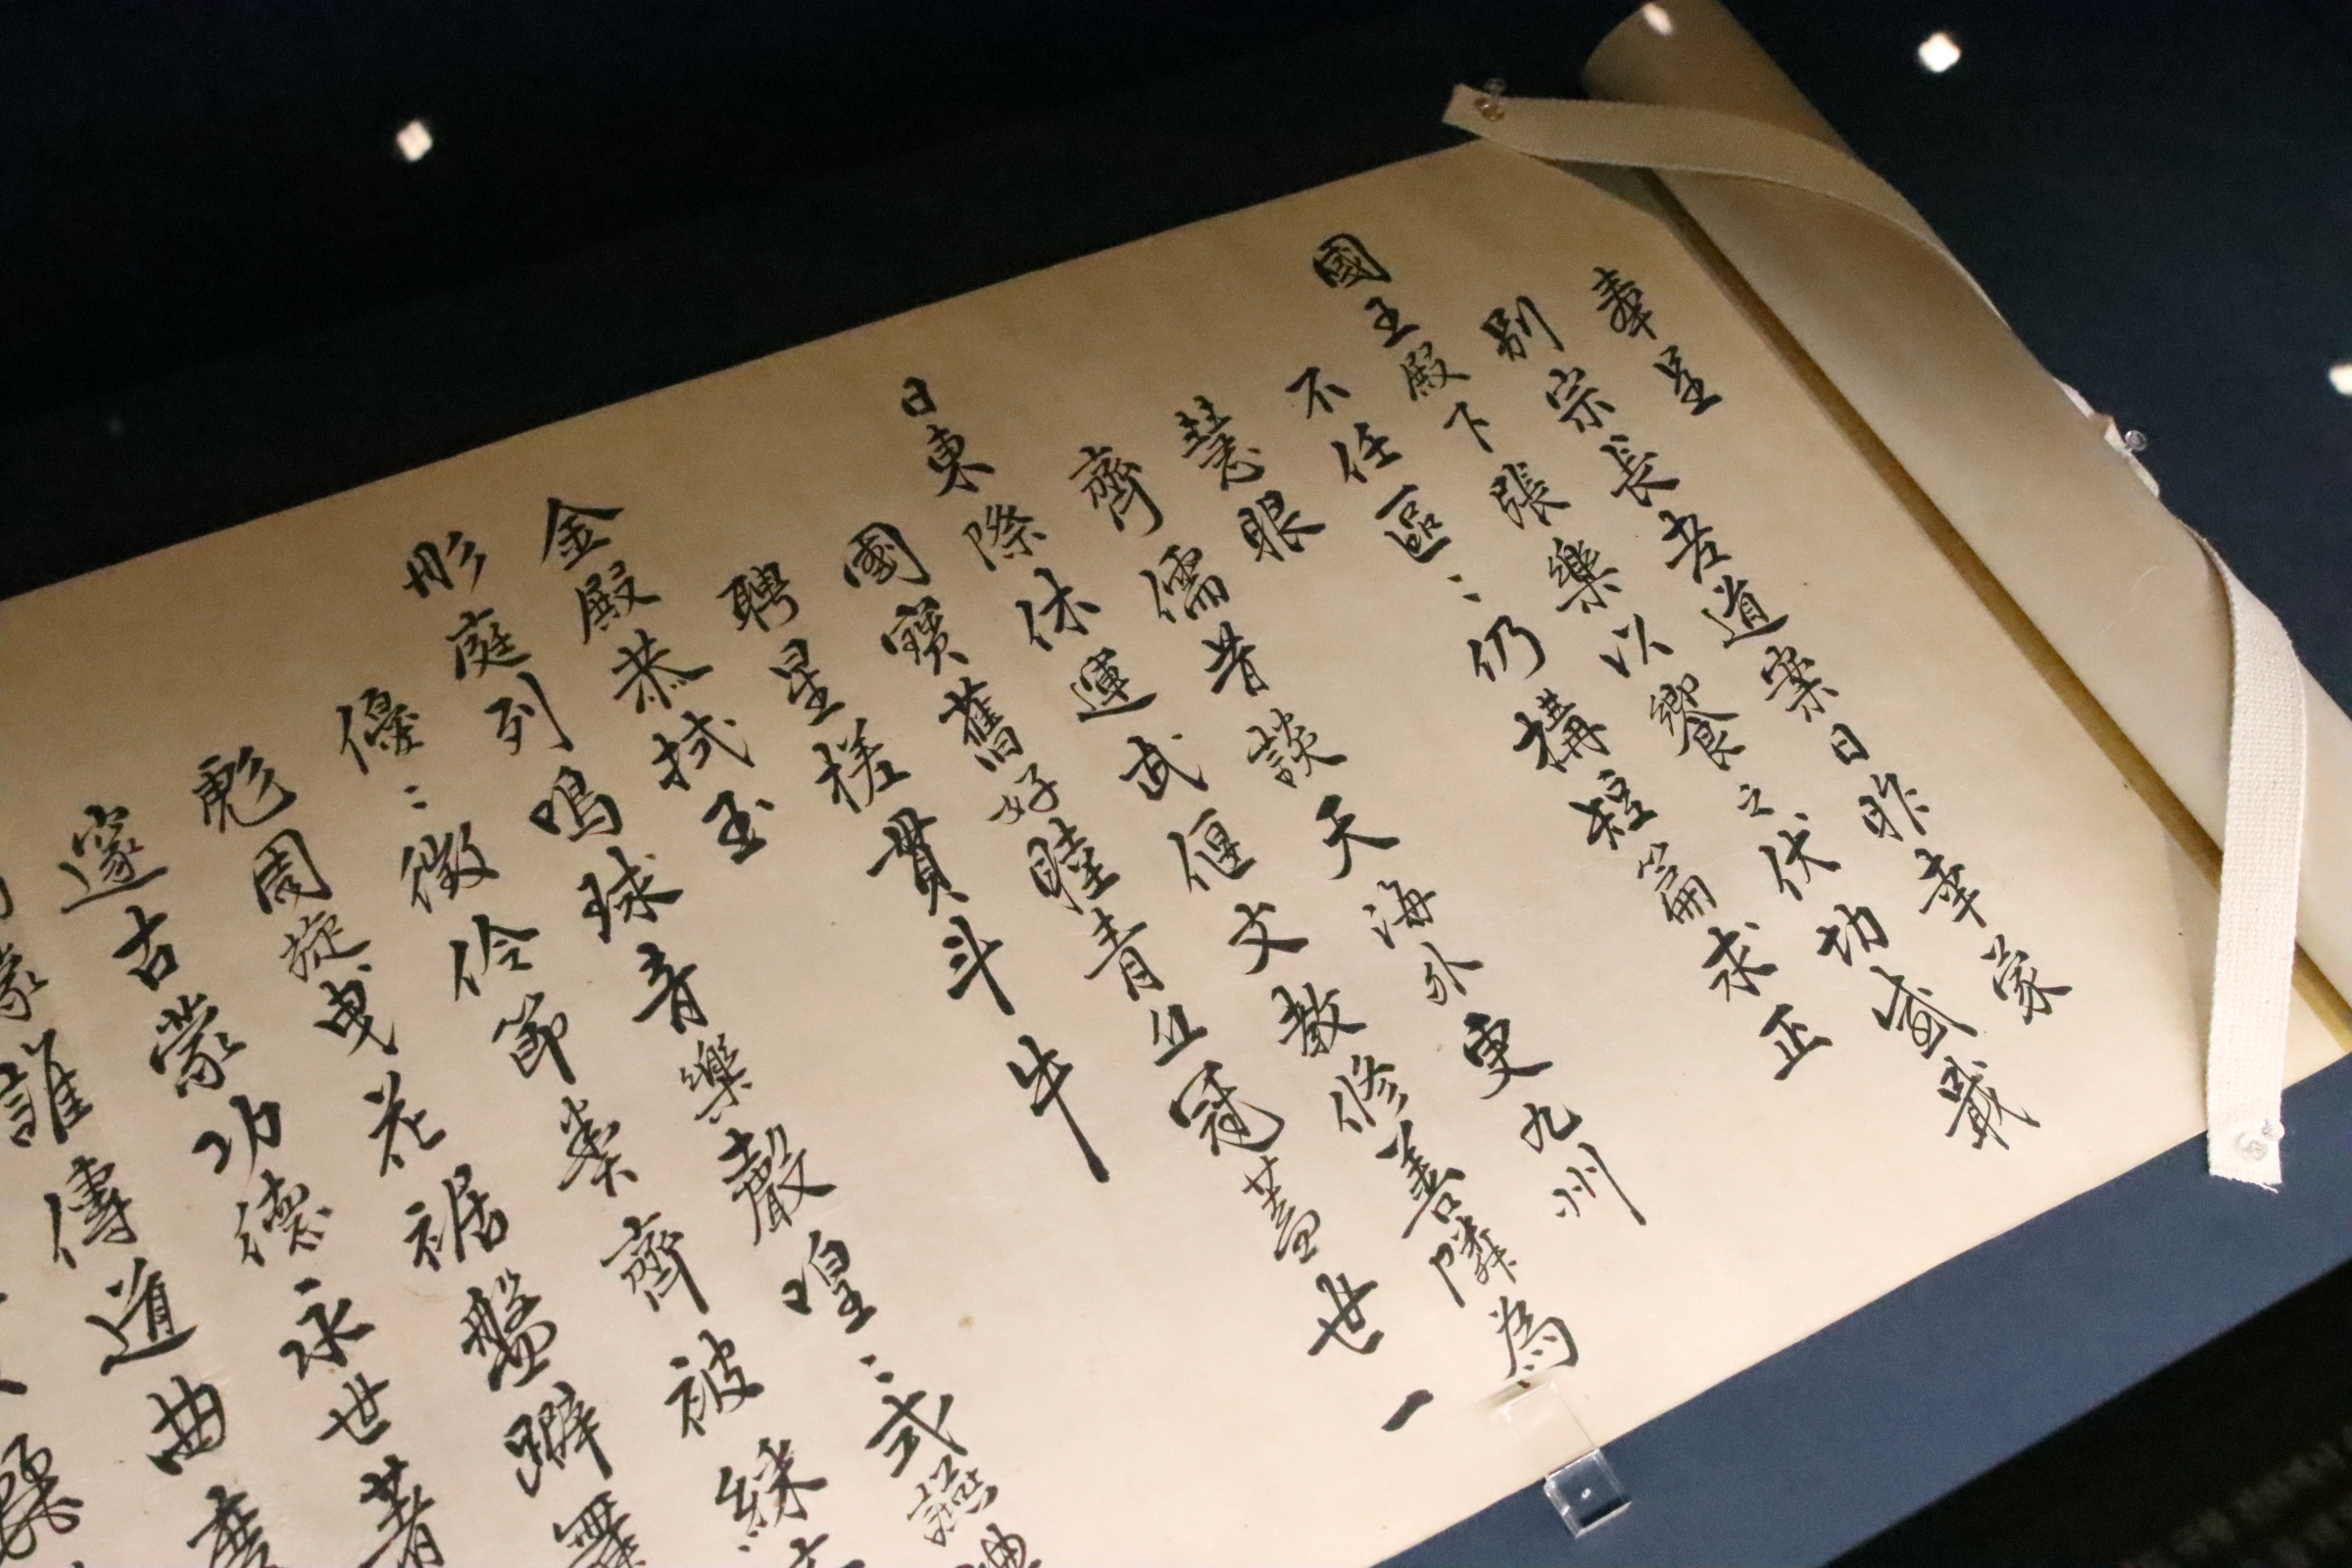 奉呈
別宗長老道案日昨幸蒙
國王殿下張樂以饗之伏功感戢
不任區〻仍構短篇求正
慧眼
齊儒昔談天海外更九州
日東際休運武偃文教修善隣為
國寶舊好睦青丘冠蓋世一
聘星槎貫斗牛
金殿恭拭玉
彤庭列鳴球音樂聲喤〻式讌
優〻徵伶節奏齊被綵
彪周旋曳花裾盤躃
邃古蒙功德永世著
誰傳道曲